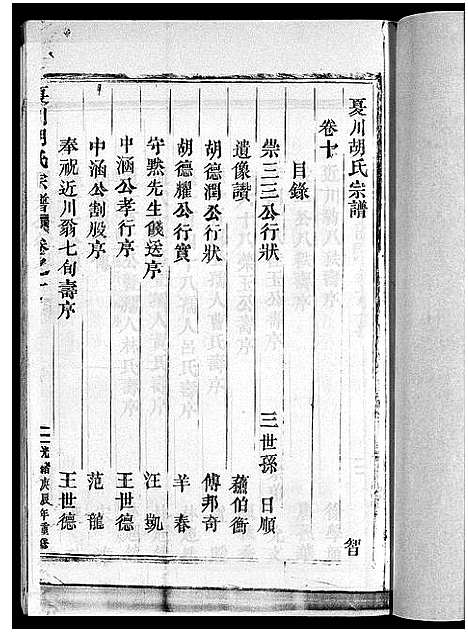 夏川胡氏宗譜 智
卷十
目錄
崇三三公行狀 三世孫 日順
遺像讚 蘇伯衡
胡德潤公行狀 傅邦奇
胡德耀公行實 羊春
守默先生餞送序 汪凱
中涵公孝行序 王世德
中涵公割股序 范龍
奉祝近川翁七旬壽序 王世德
夏川胡氏宗譜 卷之十 光緒庚辰年重修